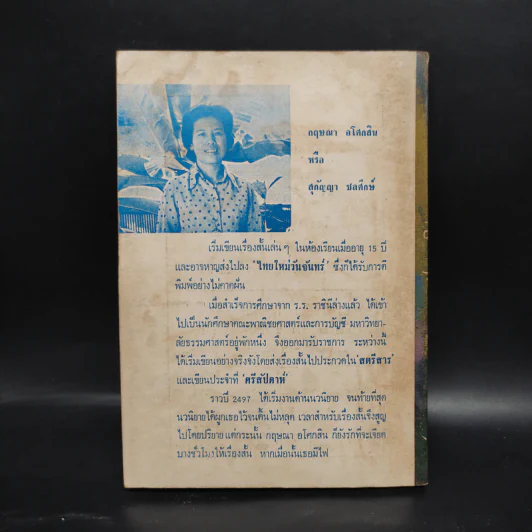 กฤษณา อโศกสิน
หรือ
สุกัญญา ชลศึกษ์
เริ่มเขียนเรื่องสั้นเล่น ๆ ในห้องเรียนเมื่ออายุ 15 ปี
และอาจหาญส่งไปลง "ไทยใหม่วันจันทร์" ซึ่งก็ได้รับการตี
พิมพ์อย่างไม่คาดฝัน
เมื่อสำเร็จการศึกษาจาก ร.ร. ราชินีล่างแล้ว ได้เข้า
ไปเป็นนักศึกษาคณะพาณิชยศาสตร์และการบัญชี มหาวิทยา-
ลัยธรรมศาสตร์อยู่พักหนึ่ง จึงออกมารับราชการ ระหว่างนี้
ได้เริ่มเขียนอย่างจริงจังโดยส่งเรื่องสั้นไปประกวดใน "สตรีสาร"
และเขียนประจำที่ "ศรีสัปดาห์"
ราวปี 2497 ได้เริ่มงานด้านนวนิยาย จนท้ายที่สุด
นวนิยายได้ผูกเธอไว้จนดิ้นไม่หลุด เวลาสำหรับเรื่องสั้นจึงสูญ
ไปโดยปริยาย แต่กระนั้น กฤษณา อโศกสิน ก็ยังรักที่จะเจียด
บางชั่วโมงให้เรื่องสั้น หากเมื่อนั้นเธอมีไฟ